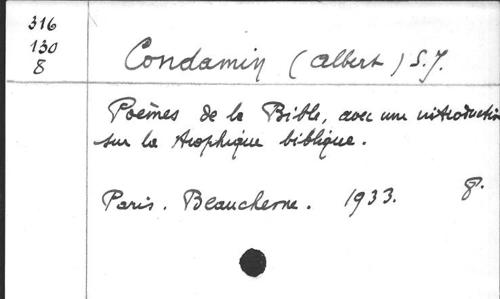 316
130
8
Condamin (Albert) S.J.
Poèmes de la Bible, avec une introduction
sur la strophique biblique.
Paris. Beauchesne. 1933. 8.